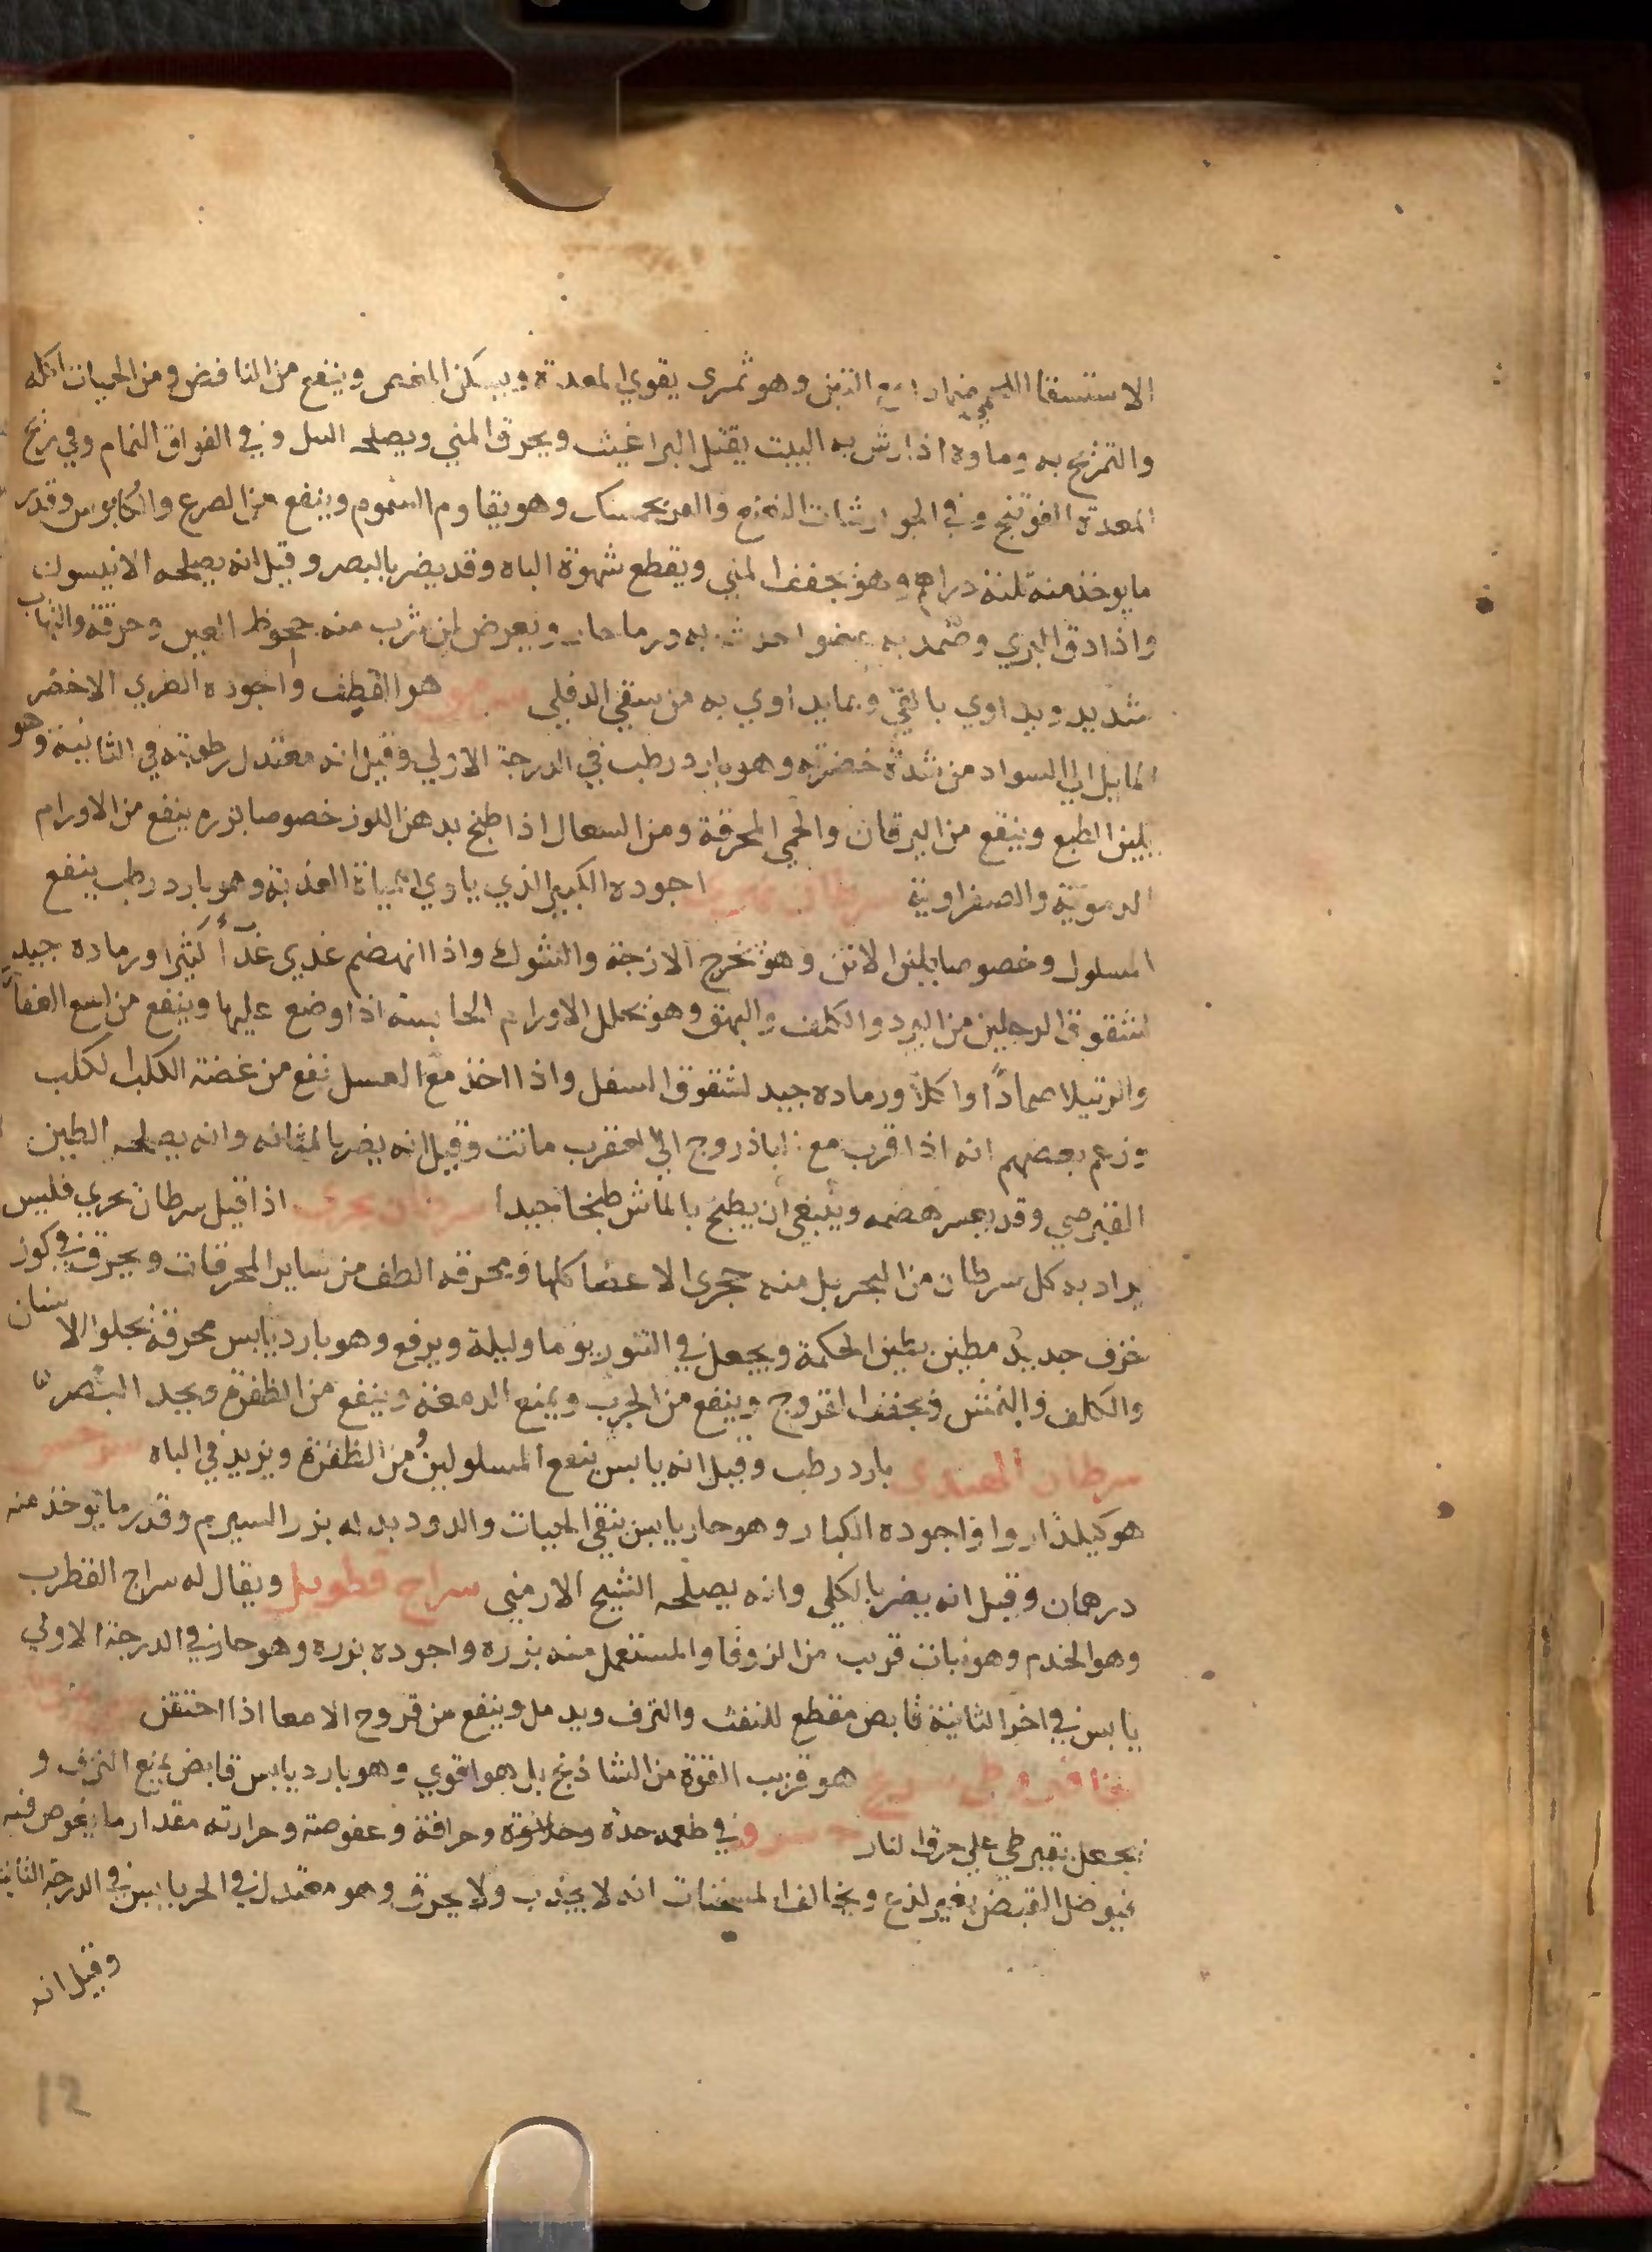 الاستسقا اللحمي ضمادا مع التين وهو ثمري يقوي المعدة ويسكن المغص وينفع من النافض ومن الحيات اكله
والتمزيخ به وماوه اذا رش به البيت يقتل البراغيث ويحرق المني ويصلحه السل وفي الفواق النمام وفي ريح
المعدة الفوتنج وفي الجوارشنات النعنع والفرنجمسك وهو يقاوم السموم وينفع من الصرع والكابوس وقدر
ما يوخذ منه ثلثة دراهم وهو يجفف المني ويقطع شهوة الباه وقد يضر بالبصر وقيل انه يصلحه الانيسون
واذا دق البري وضمد به عضو احدث به ورما حار ويعرض لمن شرب منه جحوظ العين وحرقة والتهاب
شديد ويداوي بالقي وبما يداوي به من سقي الدفلي هو القطف واجوده الطري الاخضر
المايل الي السواد من شدة خضرته وهو بارد رطب في الدرجة الاولي وقيل انه معتدل رطوبته في الثانية وهو
يلين الطبع وينفع من اليرقان والحمي المحرقة ومن السعال اذا طبخ بدهن اللوز خصوصا بزره ينفع من الاورام
الدموية والصفراوية سرطان نهري اجوده الكبير الذي ياوي المياة العذبة وهو بارد رطب ينفع
المسلول وخصوصا بلبن الاتن وهو يخرج الازجة والشوك واذا انهضم غذي غذأ كثيرا ورماده جيد
لشقوق الرجلين من البرد والكلف والبهق وهو يحلل الاورام الجاسية اذا وضع عليها وينفع من لسع العقارب
والرتيلا ضمادًا واكلا ورماده جيد لشقوق السفل واذا اخذ مع العسل نفع من عضة الكلب الكلب
وزعم بعضهم انه اذا قرب مع الباذروج الي العقرب ماتت وقيل انه يضر بالمثانه وانه يصلحه الطين
القبرصي وقد يعسر هضمه وينبغي ان يطبخ بالماش طبخا جيدا سرطان بحري اذا قيل سرطان بحري فليس
يراد به كل سرطان من البحر بل منه حجري الاعضا كلها ومحرقه الطف من ساير المحرقات ويحرق في كوز
خزف جديد مطين بطين الحكمة ويجعل في التنور يوما وليلة ويرفع وهو بارد يابس محرقة يجلوا الاسنان
والكلف والنمش ويجفف القروج وينفع من الجرب ويمنع الدمعة وينفع من الظفرة ويحد البصر
سرطان الهندي بارد رطب وقيل انه يابس ينفع المسلولين ومن الظفرة ويزيد في الباه سرخس
هو كيلدارو واجوده الكبار وهو حار يابس ينقي الحيات والدود بدله بزر السيرم وقدر ما يوخذ منه
درهمان وقيل انه يضر بالكلي وانه يصلحه الشيح الارمني سراج قطوبل ويقال له سراج القطرب
وهو الخدم وهو نبات قريب من الزوفا والمستعمل منه بزره واجوده بزره وهو حار في الدرجة الاولي
يابس في اخر الثانية قابض مقطع للنفث والنزف ويدمل وينفع من قروح الامعا اذا احتقن
هو قريب القوة من الشاذنج بل هو اقوي وهو بارد يابس قابض يمنع النزف و
يجعل بقيرطي علي حرق النار سرو في طعمه حدة وحلاوة وحرافة وعفوصة وحرارته مقدار ما يغوص فيه
غيوض القبض بغير لذع ويخالف المسخنات انه لا يجذب ولا يحرق وهو معتدل في الحر يابس في الدرجة الثانية
وقيل انه
12